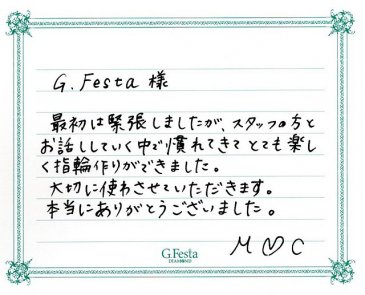 G. Festa 様
最初は緊張しましたが、スタッフの方と
お話ししていく中で慣れてきてとても楽し
く指輪作りができました。
大切に使わさせていただきます。
本当にありがとうございました。
M ♡ C
G.Festa
DIAMOND